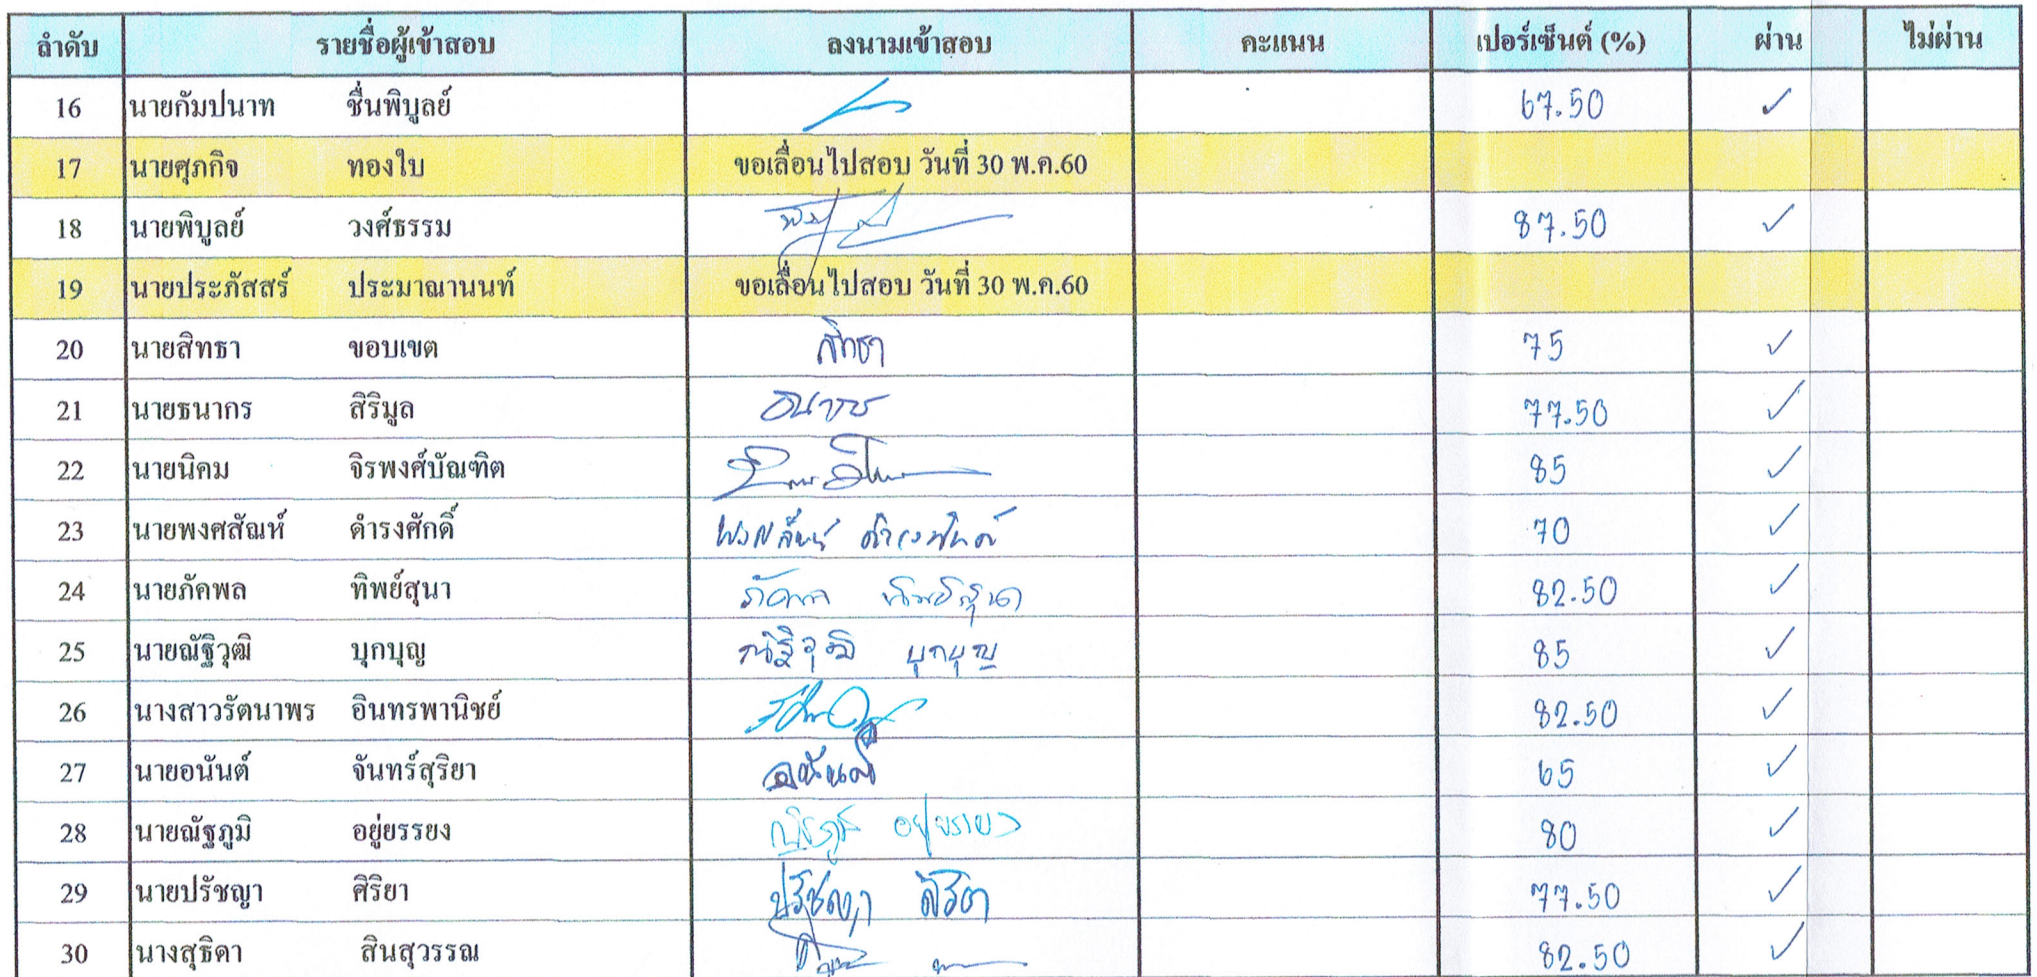 ลำดับ รายชื่อผู้เข้าสอบ ลงนามเข้าสอบ คะแนน เปอร์เซ็นต์ (%) ผ่าน ไม่ผ่าน
16 นายกัมปนาท ชื่นพิบูลย์ 67.50 ✓
17 นายศุภกิจ ทองใบ ขอเลื่อนไปสอบ วันที่ 30 พ.ค.60
18 นายพิบูลย์ วงศ์ธรรม 87.50 ✓
19 นายประภัสสร์ ประมาณานนท์ ขอเลื่อนไปสอบ วันที่ 30 พ.ค.60
20 นายสิทธา ขอบเขต สิทธา 75 ✓
21 นายธนากร สิริมูล ธนากร 77.50 ✓
22 นายนิคม จิรพงศ์บัณฑิต 85 ✓
23 นายพงศสัณห์ ดำรงศักดิ์ พงศสัณห์ ดำรงศักดิ์ 70 ✓
24 นายภัคพล ทิพย์สุนา ภัคพล ทิพย์สุนา 82.50 ✓
25 นายณัฐิวุฒิ บุกบุญ ณัฐิวุฒิ บุกบุญ 85 ✓
26 นางสาวรัตนาพร อินทรพานิชย์ 82.50 ✓
27 นายอนันต์ จันทร์สุริยา อนันต์ 65 ✓
28 นายณัฐภูมิ อยู่ยรรยง ณัฐภูมิ อยู่ยรรยง 80 ✓
29 นายปรัชญา ศิริยา ปรัชญา ศิริยา 77.50 ✓
30 นางสุธิดา สินสุวรรณ 82.50 ✓